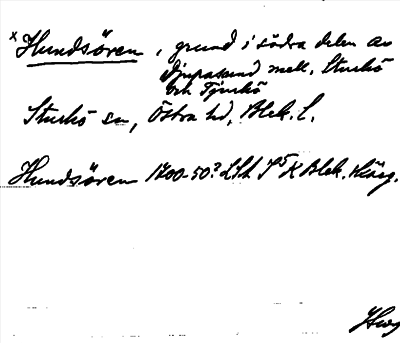 x Hundsören, grund i södra delen av
Djupasund mell. Sturkö
och Tjurkö
Sturkö sn, Östra hd, Blek. l.
Hundsören 1700-50? LSA K Blek.